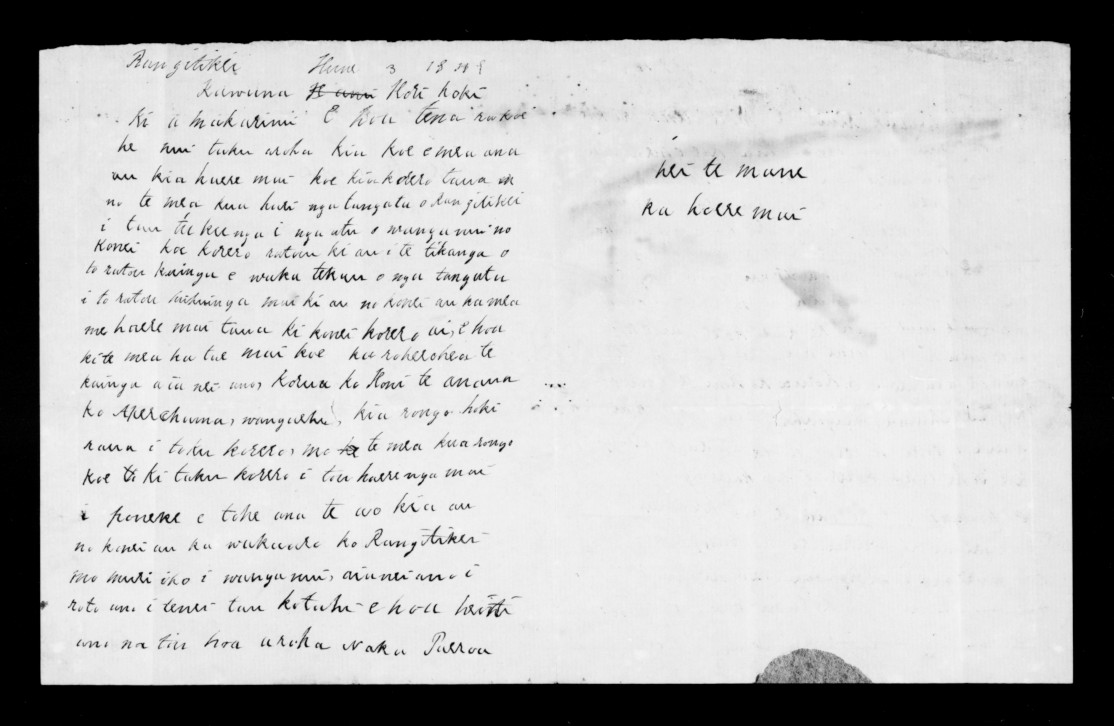 Rangitikei Hune 3 18
Kawana Hori hoki
ki a makarini E hoa tena ra koe
he nui taku aroha kia koe e mea ana
au kia haere mai koe kia korero taua
no te mea kua huri nga tangata o Rangitikei
i tau tekenga i nga atu o wanganui no
konei hoe korero ratou ki au i te tikanga o
to ratou kainga e waka tekau o nga tangata
i to ratou huihuinga mai ki au no konei au ka mea
me haere mai taua ki konei korero ai, E hoa
ki te mea ka tae mai koe ka roherohea te
kainga aia nei ano, korua ko Honi te anana
ko Aperehama, wangaehu, kia rongo hoki
raua i toku korero, mo te mea kua rongo
koe ki taku korero i tou haerenga mai
i poneke e tohe ana te ao kia au
no konei au ka wakaaro ko Rangitikei
mo muri iho i wanganui, aianei ano i
roto ano i tenei tau kotahi e hoa heoi
ano na tou hoa aroha Naka
hei te mane
ka haere mai